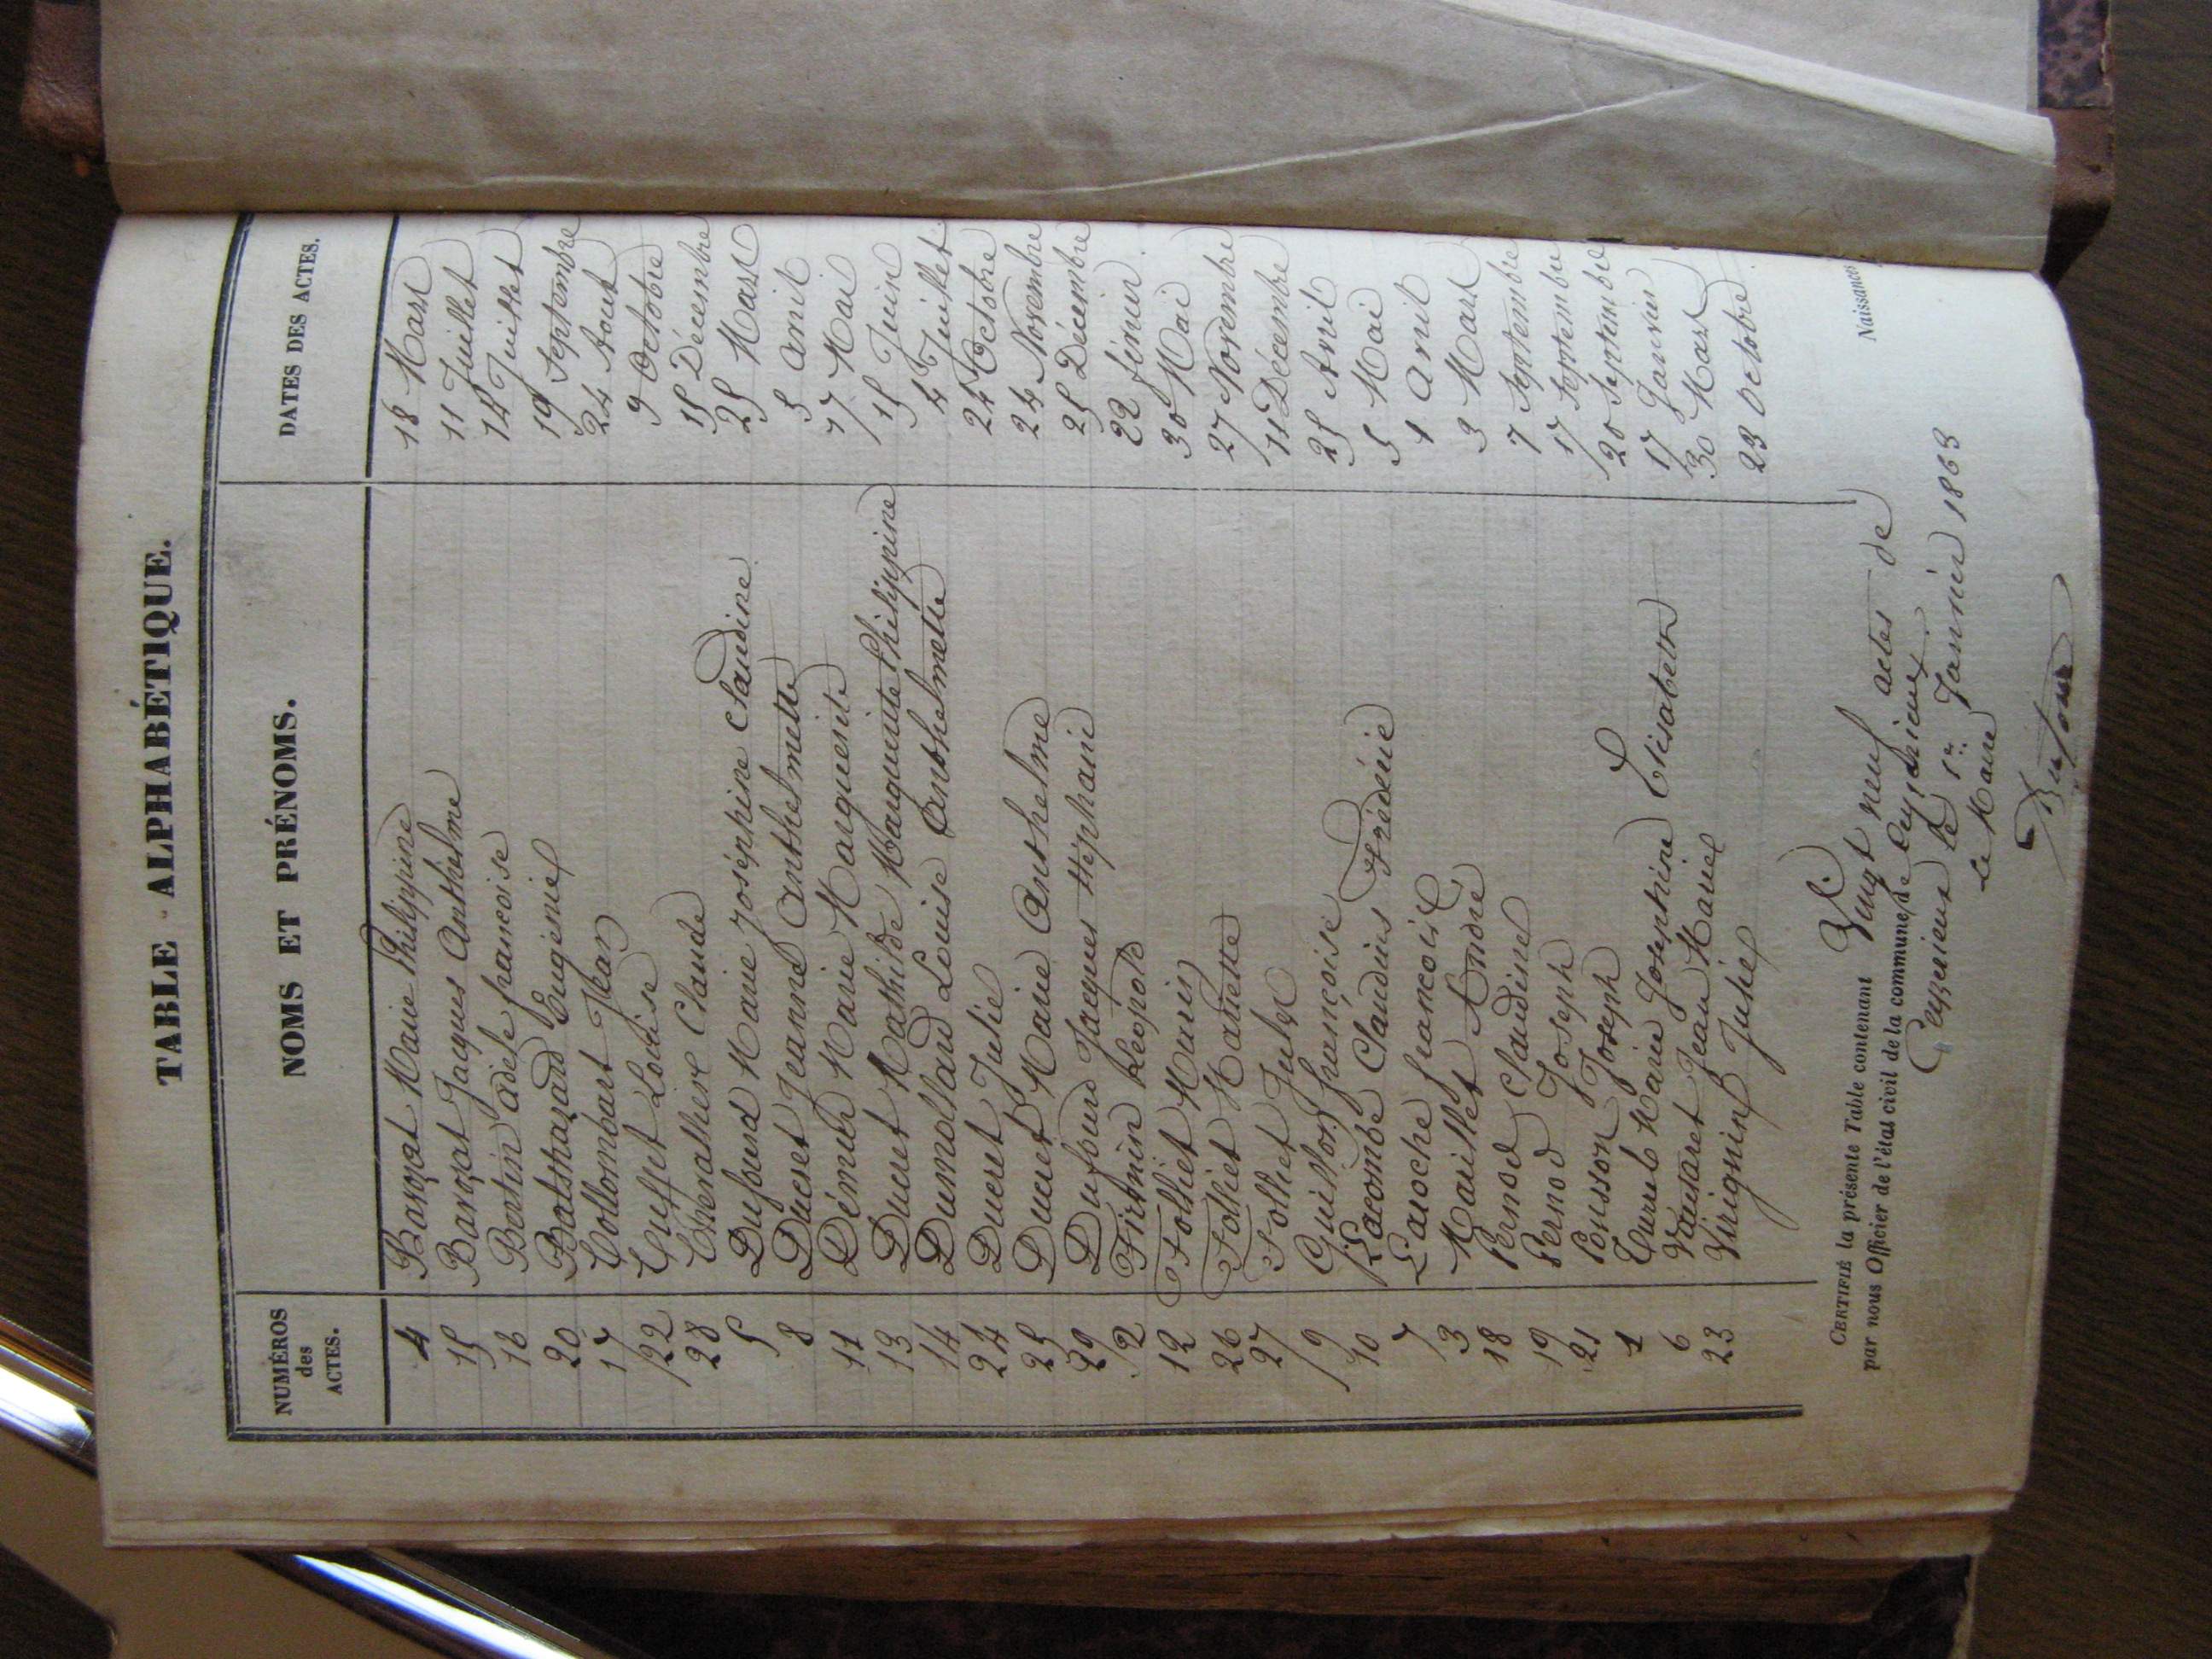 TABLE ALPHABÉTIQUE.
NUMÉROS des ACTES. NOMS ET PRÉNOMS. DATES DES ACTES.
4 Barozat Marie Philippine 18 Mars
15 Barozat Jacques Anthelme 11 Juillet
16 Bertin adèle françoise 14 Juillet
20 Balthazard Eugénie 19 Septembre
17 Collombart Jean 24 Aout
22 Cuffet Louise 9 Octobre
28 Chevallier Claude 15 Décembre
5 Dufour Marie Joséphine Claudine 25 Mars
8 Ducret Jeanne Anthelmette 5 avril
11 Démur Marie Marguerite 17 Mai
13 Ducret Mathilde Marguerite Philippine 15 Juin
14 Dumollard Louise Anthelmette 4 Juillet
24 Ducret Julie 24 Octobre
25 Ducret Marie Anthelme 24 Novembre
29 Dufour Jacques Stéphanie 25 Décembre
2 Firmin Léopold 22 février
12 Folliet Marie 30 Mai
26 Folliet Mariette 27 Novembre
27 Folliet Jules 11 Décembre
9 Guillon françoise 25 Avril
10 Lacombe Claudius Frédéric 5 Mai
7 Laroche francois 1 avril
3 Maillet André 3 Mars
18 Pernod Claudine 7 Septembre
19 Pernod Joseph 17 Septembre
21 Ponsson Joseph 20 Septembre
1 Curret Marie Joséphine Elisabeth 17 Janvier
6 Vautaret Jean Marie 30 Mars
23 Virignin Julie 23 Octobre
CERTIFIÉ la présente Table contenant Vingt neuf actes de Naissances
par nous Officier de l'état civil de la commune de Ceyzérieux.
Ceyzérieux le 1er Janvier 1863
Le Maire
Dufour